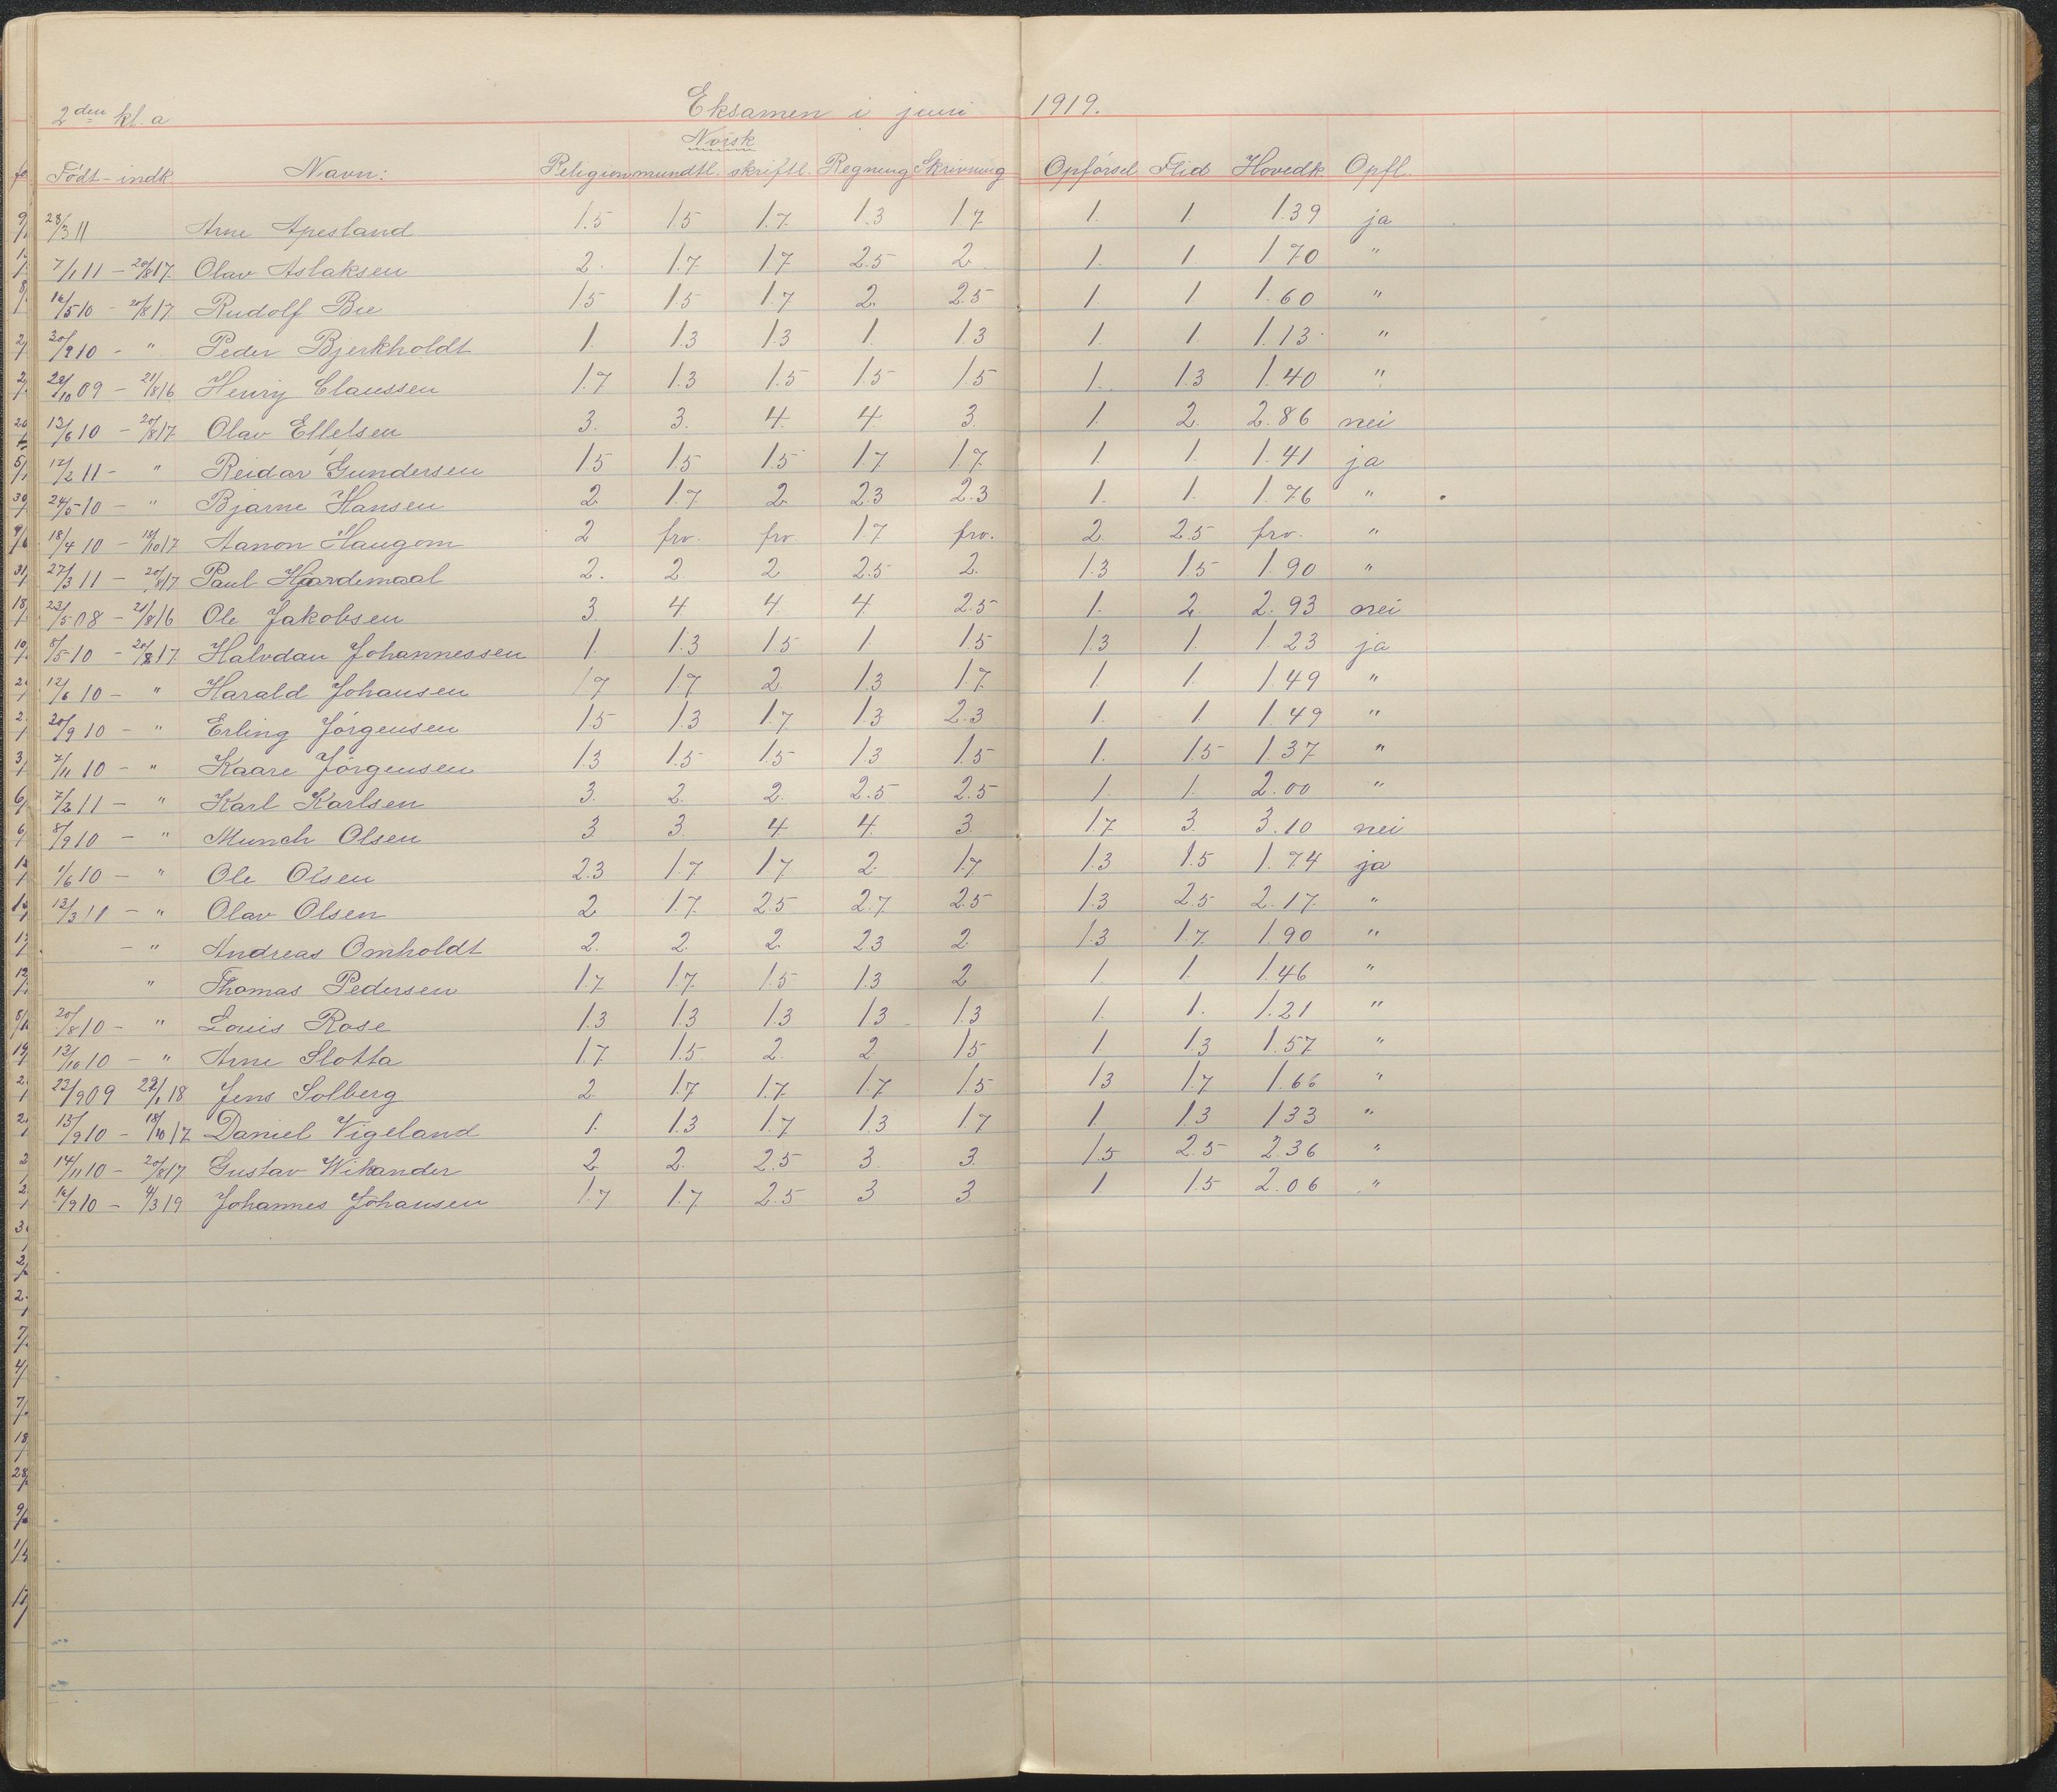 2den kl. a Eksamen i juni 1919.
Norsk
Født - indk. Navn: Religion mundtl. skriftl. Regning Skrivning Opførsel Flid Hovedk. Opfl.
28/3 11 Arne Apesland 1.5 1.5 1.7 1.3 1.7 1. 1. 1.39 ja
7/1 11 - 20/8 17 Olav Aslaksen 2. 1.7 1.7 2.5 2 1. 1 1.70 "
16/5 10 - 20/8 17 Rudolf Bie 1.5 1.5 1.7 2. 2.5 1. 1 1.60 "
30/9 10 - " Peder Bjerkholdt 1. 1.3 1.3 1. 1.3 1. 1. 1.13 "
22/10 09 - 21/8 16 Henry Claussen 1.7 1.3 1.5 1.5 1.5 1. 1.3 1.40 "
13/6 10 - 20/8 17 Olav Ellefsen 3. 3. 4. 4. 3. 1. 2. 2.86 nei
12/2 11 - " Reidar Gundersen 1.5 1.5 1.5 1.7 1.7 1. 1. 1.41 ja
24/5 10 - " Bjarne Hansen 2 1.7 2 2.3 2.3 1. 1. 1.76 "
18/4 10 - 18/10 17 Aanon Haugom 2 frv. frv 1.7 frv. 2 2.5 frv. "
27/3 11 - 20/8 17 Paul Hjardemaal 2. 2. 2 2.5 2. 1.3 1.5 1.90 "
23/5 08 - 21/8 16 Ole Jakobsen 3 4 4 4 2.5 1. 2. 2.93 nei
8/5 10 - 20/8 17 Halvdan Johannessen 1. 1.3 1.5 1. 1.5 1.3 1. 1.23 ja
12/6 10 - " Harald Johansen 1.7 1.7 2 1.3 1.7 1. 1. 1.49 "
20/9 10 - " Erling Jørgensen 1.5 1.3 1.7 1.3 2.3 1. 1. 1.49 "
7/11 10 - " Kaare Jørgensen 1.3 1.5 1.5 1.3 1.5 1. 1.5 1.37 "
7/2 11 - " Karl Karlsen 3. 2. 2. 2.5 2.5 1. 1. 2.00 "
8/9 10 - " Munch Olsen 3 3. 4. 4. 3. 1.7 3. 3.10 nei
1/6 10 - " Ole Olsen 2.3 1.7 1.7 2. 1.7 1.3 1.5 1.74 ja
13/3 11 - " Olav Olsen 2 1.7 2.5 2.7 2.5 1.3 2.5 2.17 "
- " Andreas Omholdt 2. 2. 2. 2.3 2 1.3 1.7 1.90 "
" Thomas Pedersen 1.7 1.7 1.5 1.3 2 1. 1. 1.46 "
20/8 10 - " Louis Rose 1.3 1.3 1.3 1.3 1.3 1. 1. 1.21 "
12/10 10 - " Arne Slotta 1.7 1.5 2. 2 1.5 1 1.3 1.57 "
22/9 09 29/1 18 Jens Solberg 2 1.7 1.7 1.7 1.5 1.3 1.7 1.66 "
13/9 10 - 18/10 17 Daniel Vigeland 1. 1.3 1.7 1.3 1.7 1 1.3 1.33 "
14/11 10 - 20/8 17 Gustav Wikander 2 2. 2.5 3. 3. 1.5 2.5 2.36 "
16/9 10 - 4/3 19 Johannes Johansen 1.7 1.7 2.5 3 3 1. 1.5 2.06 "